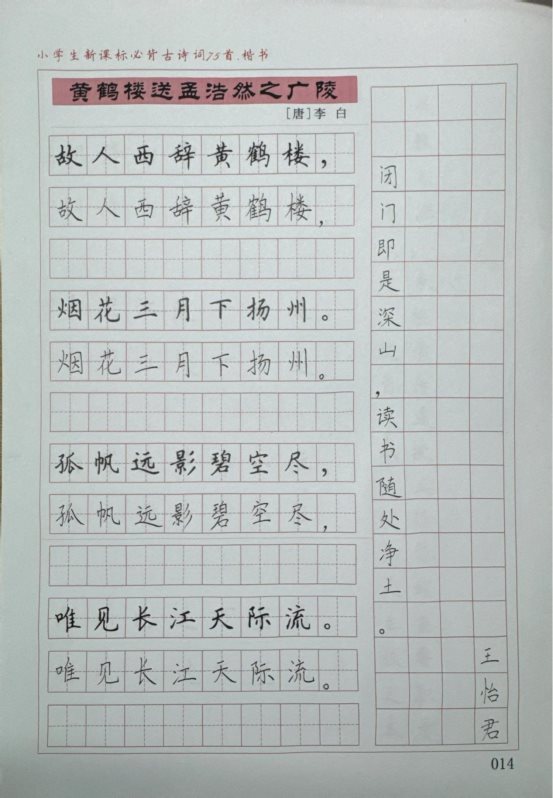 小学生新课标必背古诗词75首.楷书
黄鹤楼送孟浩然之广陵
[唐]李白
故人西辞黄鹤楼，
故人西辞黄鹤楼，
烟花三月下扬州。
烟花三月下扬州。
孤帆远影碧空尽，
孤帆远影碧空尽，
唯见长江天际流。
唯见长江天际流。
闭门即是深山，读书随处净土。
王怡君
014